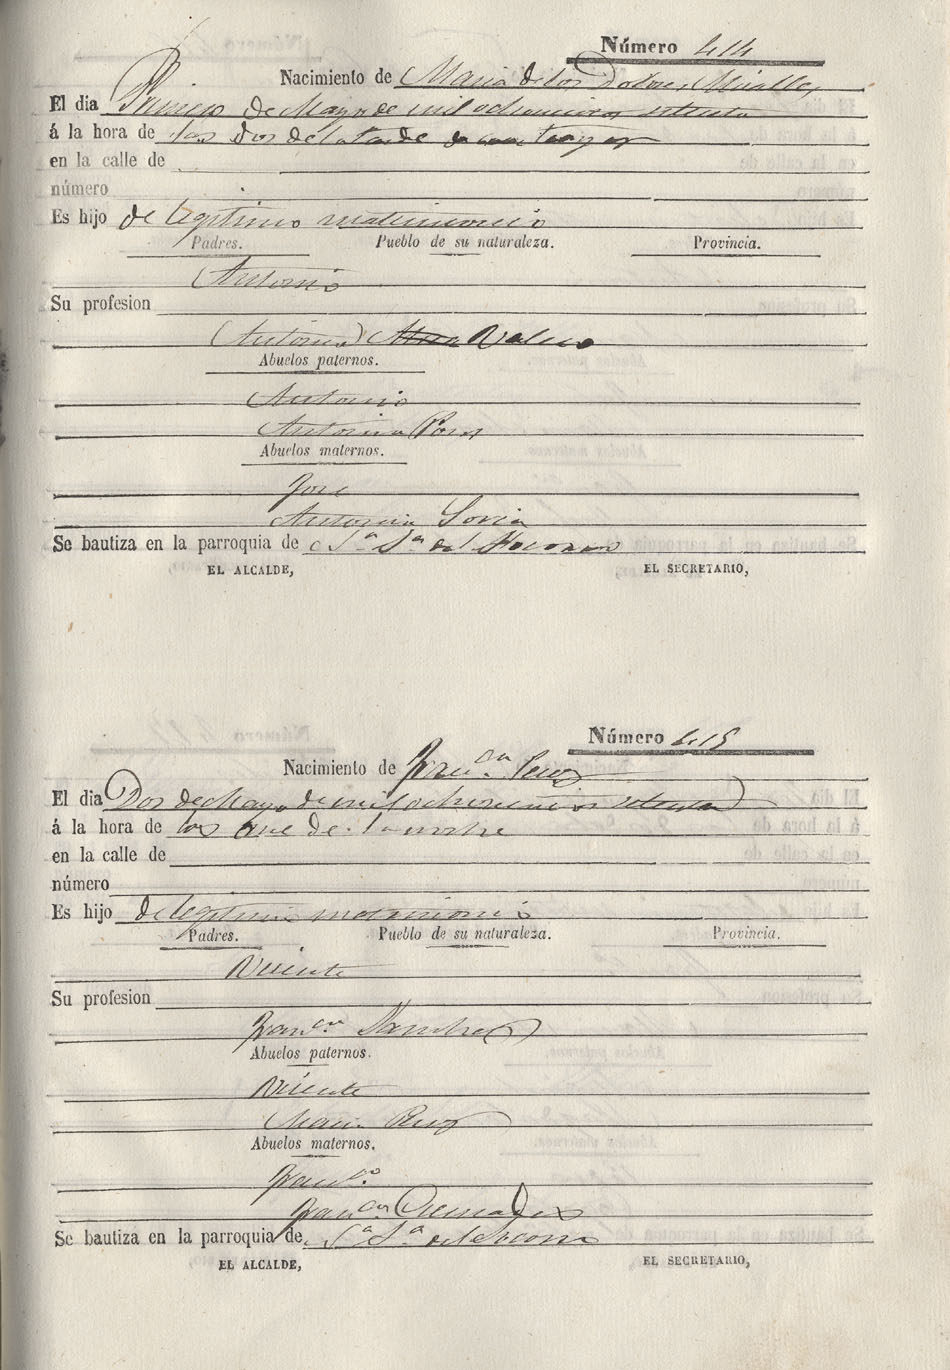 Número 414
Nacimiento de Maria de los Dolores Miralles
El dia Primero de Mayo de mil ochocientos setenta
á la hora de las dos de la tarde
en la calle de
número
Es hijo de legitimo matrimonio
Padres. Pueblo de su naturaleza. Provincia.
Antonio
Su profesion
(Antonia) Valero
Abuelos paternos.
Antonio
Antonia Pons
Abuelos maternos.
José
Antonia Soria
Se bautiza en la parroquia de
EL ALCALDE, EL SECRETARIO,
Número 415
Nacimiento de Fran.ca Perez
El dia Dos de Mayo de mil ochocientos setenta
á la hora de las once de la noche
en la calle de
número
Es hijo de legitimo matrimonio
Padres. Pueblo de su naturaleza. Provincia.
Vicente
Su profesion
Fran.ca Sanchez
Abuelos paternos.
Vicente
Maria Ruiz
Abuelos maternos.
Fran.co
Fran.ca Cremades
Se bautiza en la parroquia de S.a S.a del Socorro
EL ALCALDE, EL SECRETARIO,